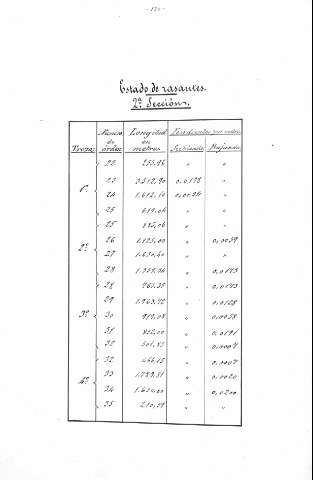 Estado de rasantes.
2ª Sección.
Trozos Número de órden Longitud en metros Pendientes por metro
Subiendo Bajando
22 255.96 " "
1º 23 3.512,90 0,0178 "
24 1.612,10 0,0026 "
25 619,06 " "
25 " "
2º 26 1.125,00 " 0,0059
27 1.630,40 " "
28 " 0,0173
28 761,35 " 0,0173
29 1.963,72 " 0,0128
3º 30 919,08 " 0,0058
31 812,00 " 0,0191
32 501,85 " 0,0007
32 446,15 " 0,0007
4º 33 1.789,51 " 0,0020
34 " 0,0200
35 210,59 " "